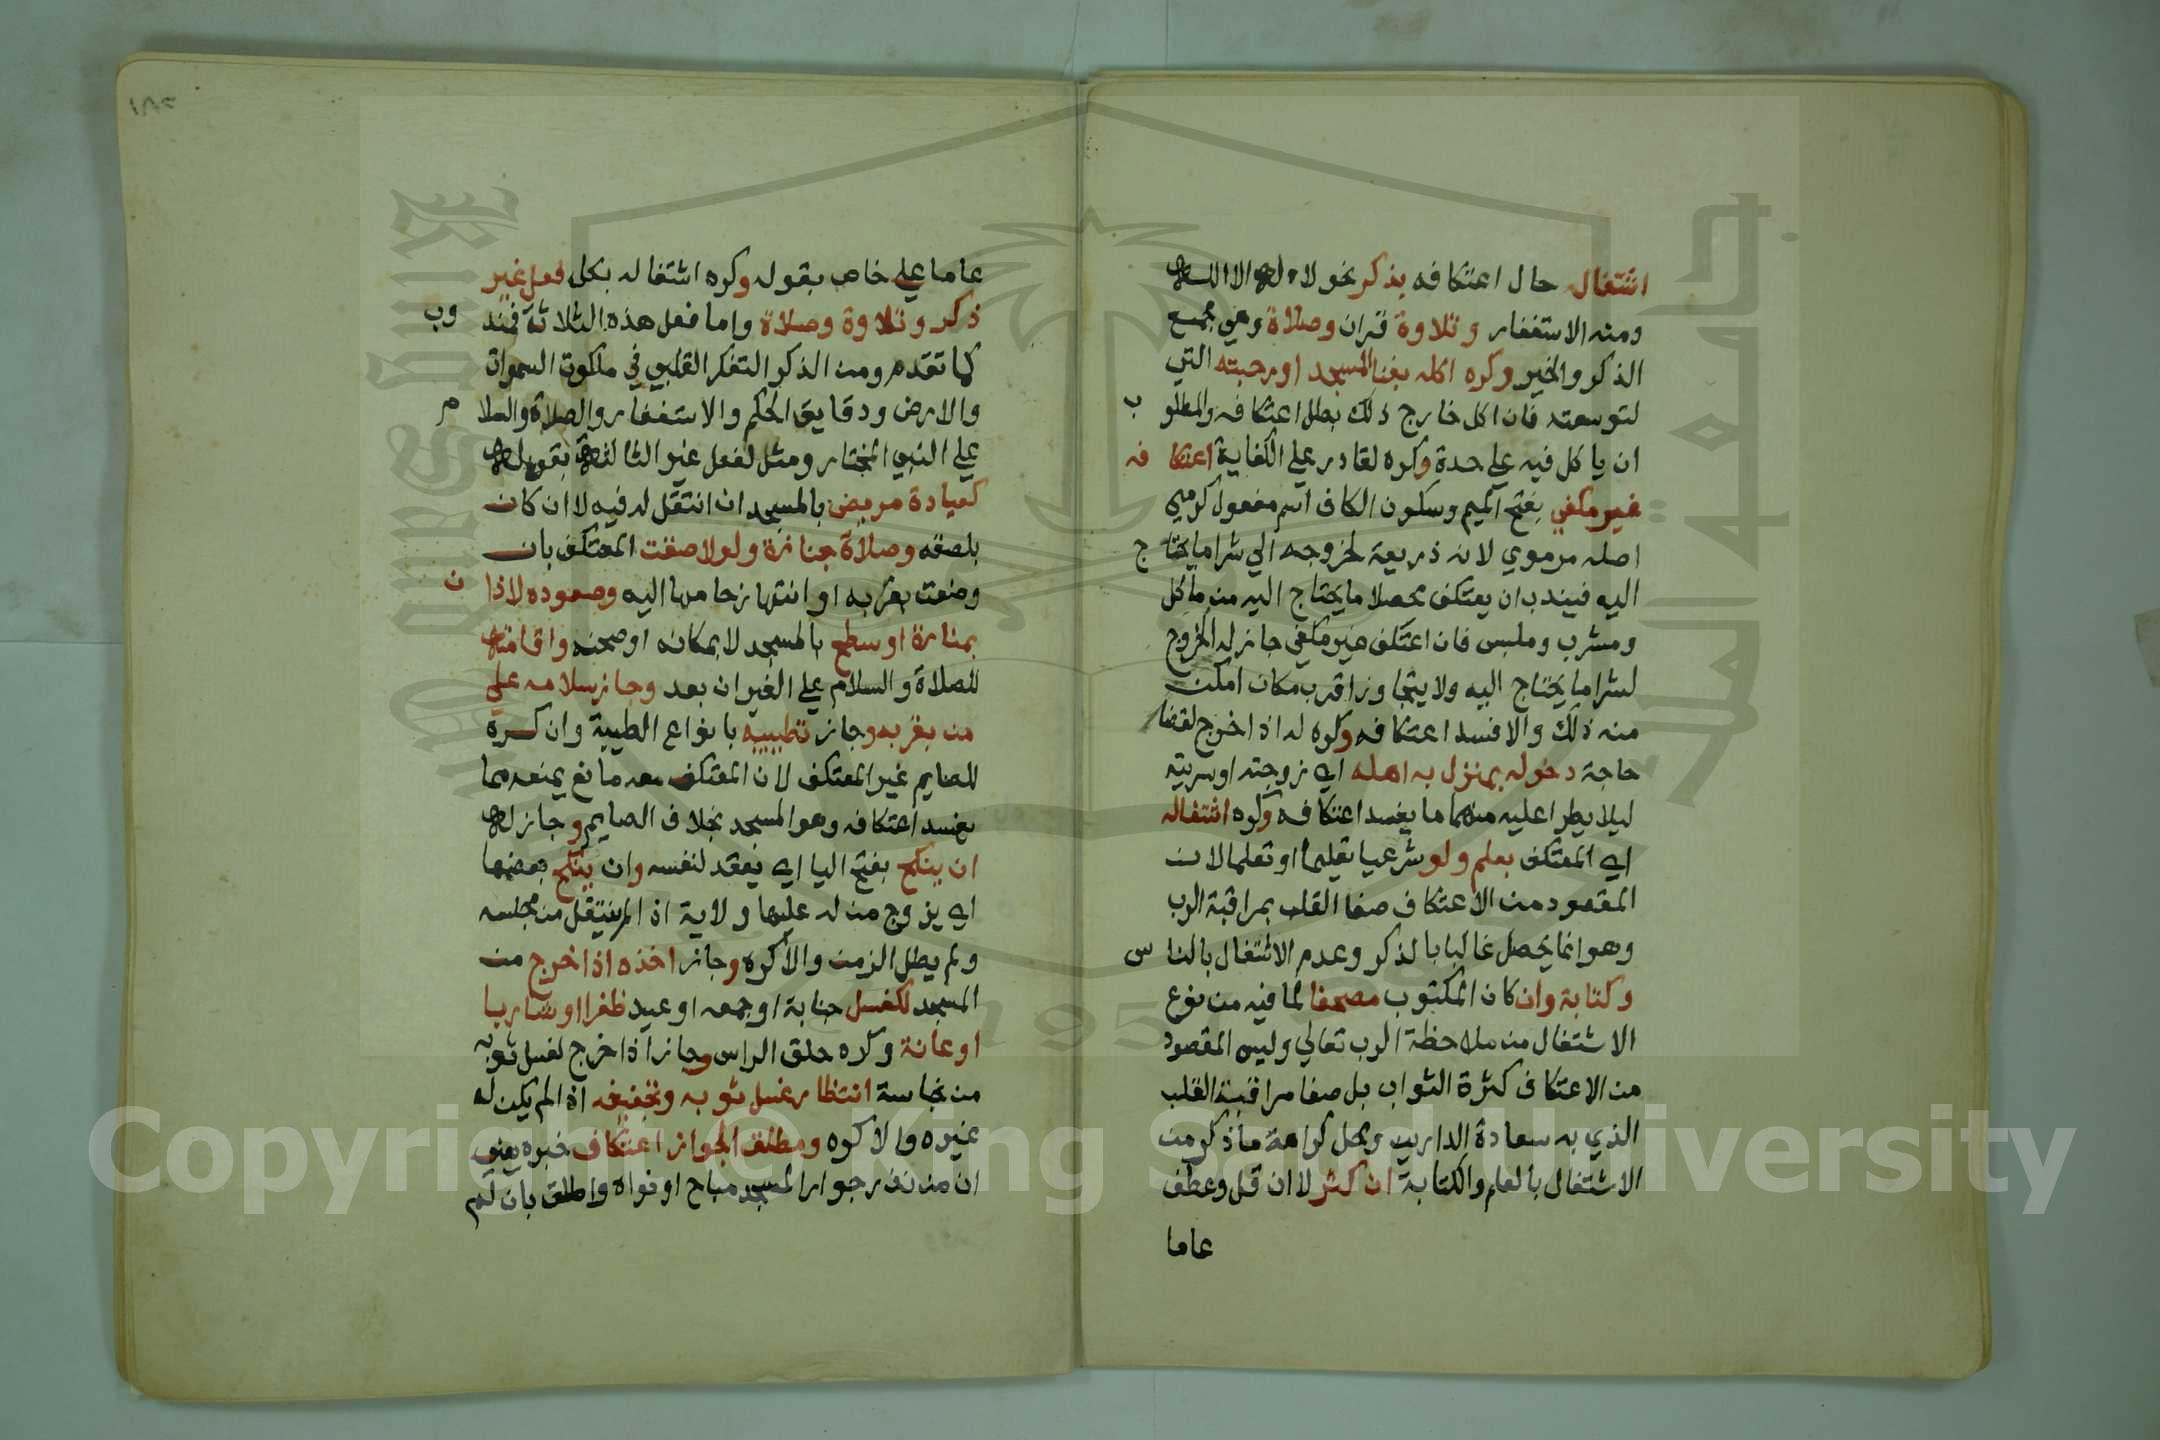 اشتغاله حال اعتكافه بذكر نحو لا اله الا الله
ومنه الاستغفار وتلاوة قران وصلاة وهي مجمع
الذكر والخير وكره اكله بفنا المسجد او رحبته التي
لتوسعته فان اكل خارج ذلك بطل اعتكافه والمطلوب
ان ياكل فيه على حدة وكره لقادر على الكفاية اعتكافه
غير مكفي بفتح الميم وسكون الكاف اسم مفعول كرمي
اصله مرموي لانه ذريعة لخروجه الي شرا ما يحتاج
اليه فيندب ان يعتكف محصلا ما يحتاج اليه من ماكل
ومشرب وملبس فان اعتكف غير مكفي جاز له الخروج
لشرا ما يحتاج اليه ولا يتجاوز اقرب مكان امكن
منه ذلك والا فسد اعتكافه وكره له اذا خرج لقضا
حاجة دخوله بمنزل به اهله اي زوجته او سريته
ليلا يطرا عليه منهما ما يفسد اعتكافه وكره اشتغاله
اي المعتكف بعلم ولو شرعيا تعليما او تعلما لان
المقصود من الاعتكاف صفا القلب بمراقبة الرب
وهو انما يحصل غالبا بالذكر وعدم الاشتغال بالناس
وكتابة وان كان المكتوب مصحفا لما فيه من نوع
الاشتغال من ملاحظة الرب تعالي وليس المقصود
من الاعتكاف كثرة الثواب بل صفا مراقبة القلب
الذي به سعادة الدارين ومحل كراهة ما ذكر من
الاشتغال بالعلم والكتابة ان كثر لا ان قل وعطف
عاما
١٨٢
عاما علي خاص بقوله وكره اشتغاله بكل فعل غير
ذكر وتلاوة وصلاة واما فعل هذه الثلاثة فمندوب
كما تقدم ومن الذكر التفكر القلبي في ملكوت السموات
والارض ودقايق الحكم والاستغفار والصلاة والسلام
علي النبي المختار ومثل لفعل غير الثلاثة بقوله
كعيادة مريض بالمسجد ان انتقل له فيه لا ان كان
بلصقه وصلاة جنازة ولو لاصقت المعتكف بان
وضعت بقربه او انتها زحامها اليه وصعوده لاذان
بمنارة او سطح بالمسجد لا بمكانه او صحنه واقامته
للصلاة والسلام علي الغير ان بعد وجاز سلامه علي
من بقربه وجاز تطييبه بانواع الطيبة وان كره
للصايم غير المعتكف لان المعتكف معه مانع يمنعه مما
يفسد اعتكافه وهو المسجد بخلاف الصايم وجاز له
ان ينكح بفتح اليا اي يعقد لنفسه وان ينكح بضمها
اي يزوج من له عليها ولاية اذا لم ينتقل من مجلسه
ولم يطل الزمن والا كره وجاز اخذه اذا خرج من
المسجد لكغسل جنابة او جمعه او عيد ظفرا او شاربا
او عانة وكره حلق الراس وجاز اذا خرج لغسل ثوبه
من نجاسة انتظار غسل ثوبه وتجفيفه اذا لم يكن له
غيره والا كره ومطلق الجواز اعتكاف خبره يعني
ان من نذر جوار المسجد مباح او نواه واطلق بان لم
Copyright © King Saud University